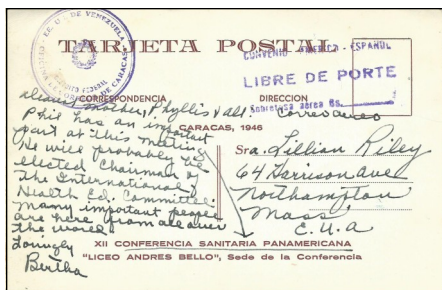 EE. UU. DE VENEZUELA
DISTRITO FEDERAL
TARJETA POSTAL
CONVENIO AMERICO - ESPAÑOL
LIBRE DE PORTE
Sobretasa aérea Bs.
CORRESPONDENCIA
DIRECCION
Correo aereo
CARACAS, 1946
Dearest Mother, Phyllis and all:
Phil has an important
part at this meeting
He will probably be
elected Chairman of
The International
Health Ed. Committee.
Many important people
are here from all over
the world
Lovingly
Bertha
Sra. Lillian Riley
64 Harrison Ave
Northampton
Mass
E.U.A
XII CONFERENCIA SANITARIA PANAMERICANA
"LICEO ANDRES BELLO", Sede de la Conferencia